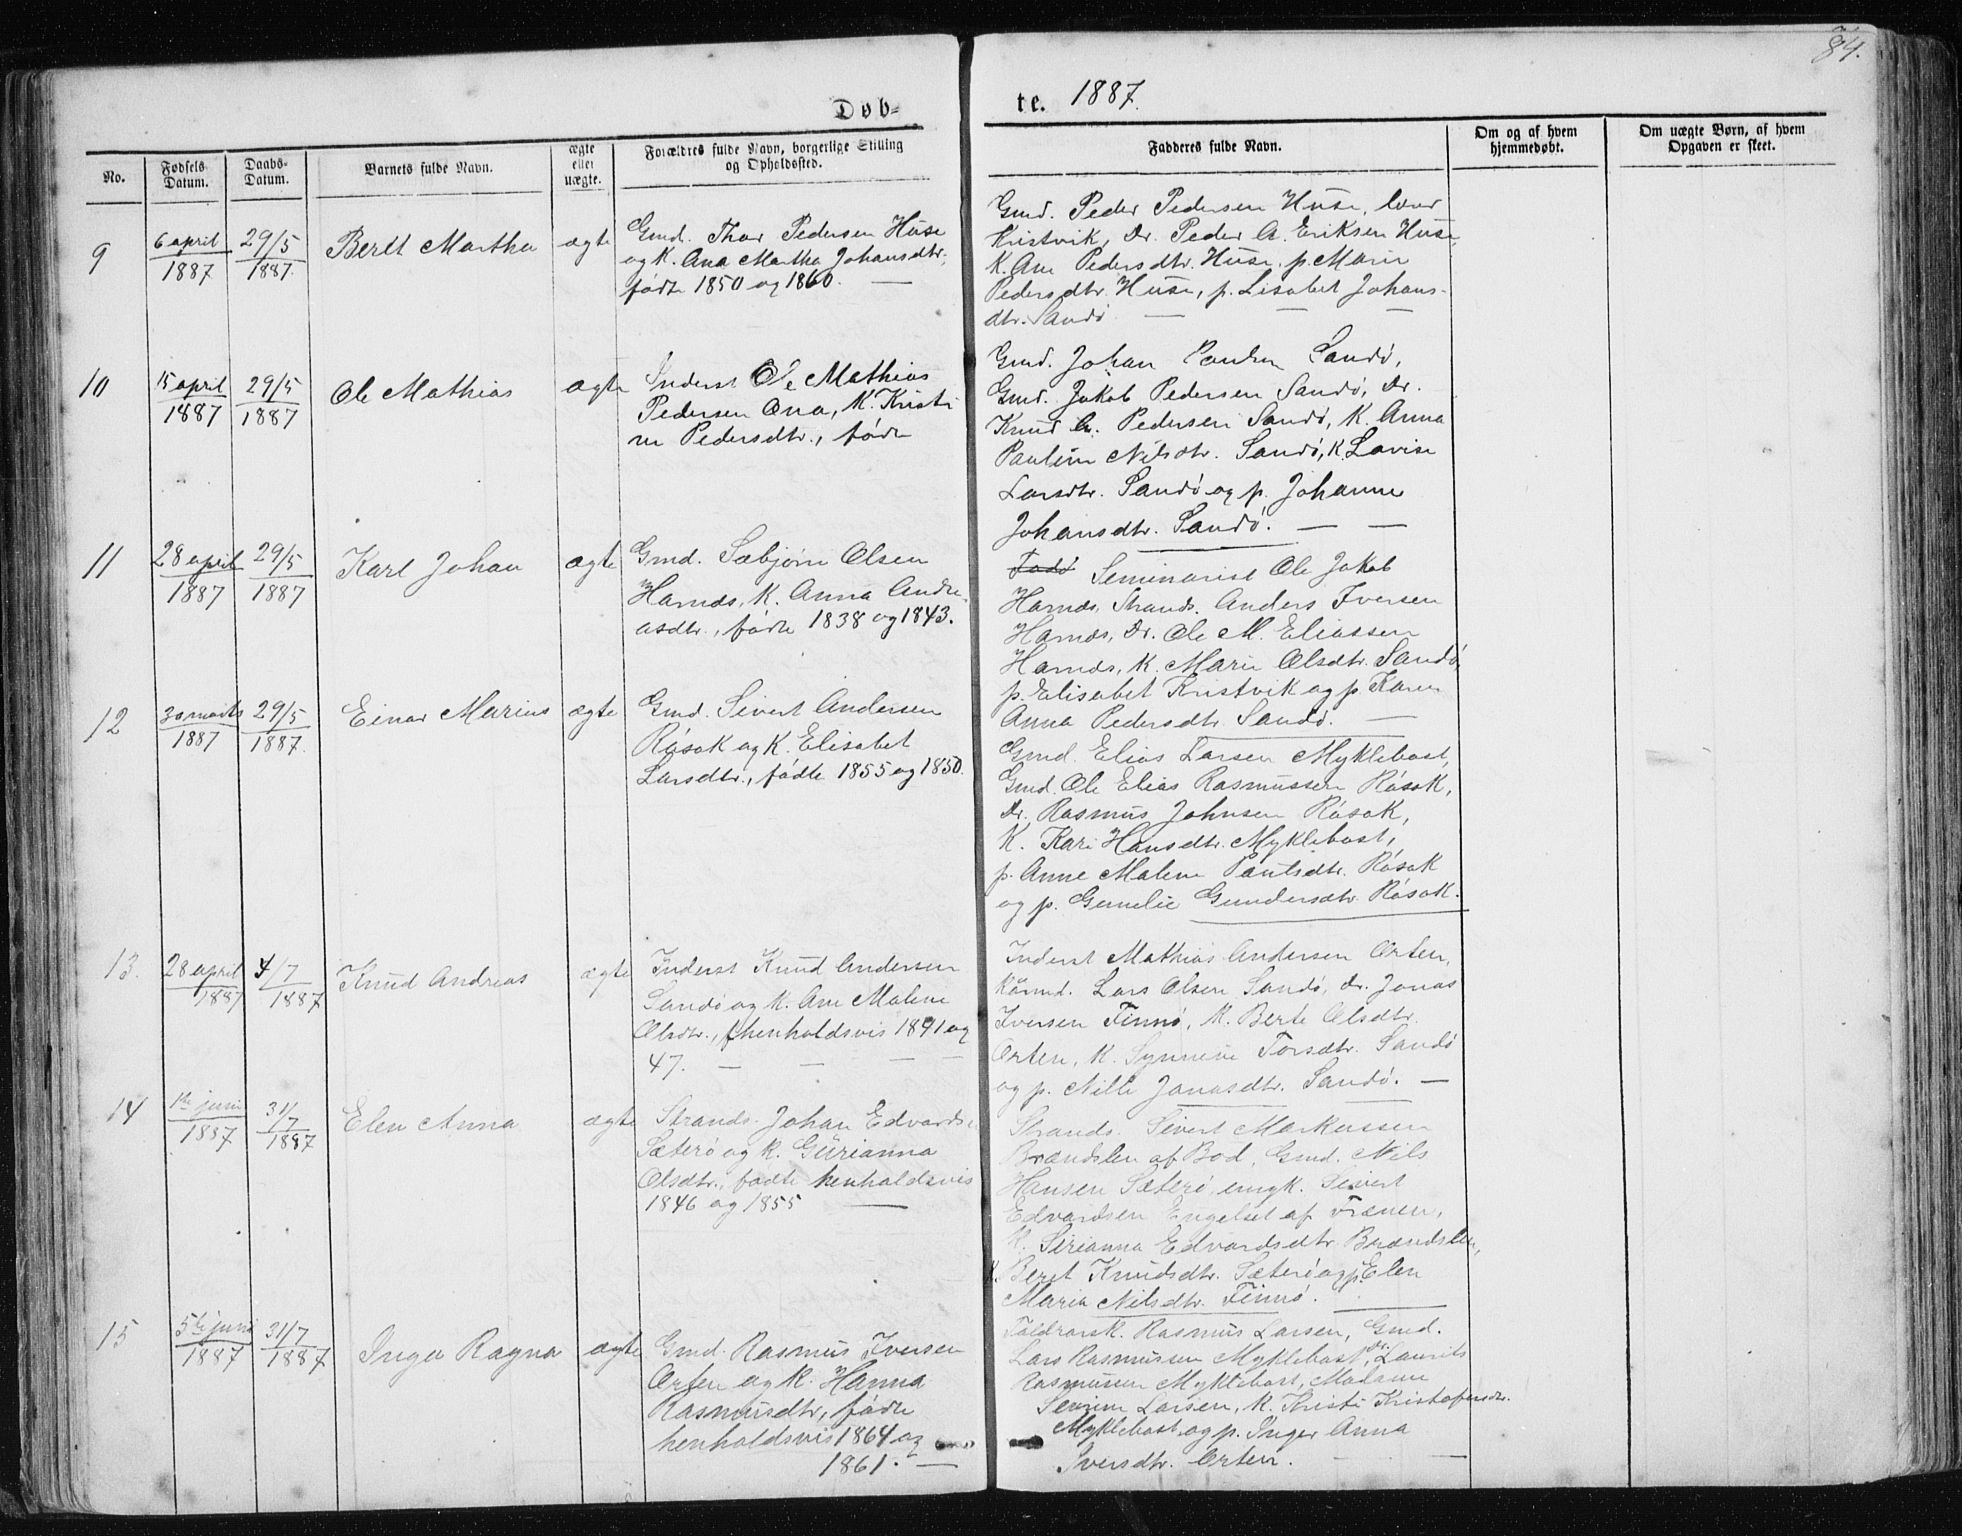 84.
Døb-
te. 1887.
No.
Fødsels Datum.
Daabs-Datum.
Barnets fulde Navn.
ægte eller uægte.
Forældres fulde Navn, borgerlige Stilling
og Opholdssted.
Fadderes fulde Navn.
Om og af hvem
hjemmedøbt.
Om uægte Børn, af hvem
Opgaven er skeet.
9
6 april 1887
29/5 1887.
Berit Martha
ægte
Gmd. Thor Pedersen Huse
og K. Ana Martha Johansdtr.,
fødte 1850 og 1860. —
Gmd. Peder Pedersen Huse,
Kristvik, Dr. Peder A. Eriksen Huse,
K. Ane Pedersdtr. Huse, p. Marie
Pedersdtr. Huse, p. Lisabet Johans-
dtr. Sandø — — —
10
15 april 1887
29/5 1887
Ole Mathias
ægte
Inderst Ole Mathias
Pedersen Ona, K. Kristi
ne Pedersdtr., fødte
Gmd. Johan Paulsen Sandø,
Gmd. Jakob Pedersen Sandø, Dr.
Knud A. Pedersen Sandø, K. Anna
Pauline Nilsdtr. Sandø, K. Lovise
Larsdtr. Sandø og p. Johanne
Johansdtr. Sandø. — —
11
28 april 1887
29/5 1887
Karl Johan
ægte
Gmd. Sæbjørn Olsen
Harnæs, K. Anna Andre
asdtr., fødte 1838 og 1843.
Seminarist Ole Jakob
Harnæs, Strands. Anders Iversen
Harnæs, Dr. Ole M. Eliassen
Harnæs, K. Marie Olsdtr. Sandø,
p. Elisabet Kristvik og p. Karen
Anna Pedersdtr. Sandø. —
12
30 marts 1887
29/5 1887.
Einar Marius
ægte
Gmd. Sivert Andersen
Røsok og K. Elisabet
Larsdtr., fødte 1855 og 1850.
Gmd. Elias Larsen Myklebost,
Gmd. Ole Elias Rasmussen Røsok,
Dr. Rasmus Johnsen Røsok,
K. Kari Hansdtr. Myklebost,
p. Anne Malene Paulsdtr. Røsok
og p. Gunelie Gundersdtr. Røsok.
13.
28 april 1887
/7 1887
Knud Andreas
ægte
Inderst Knud Andersen
Sandø og K. Ane Malene
Olsdtr., f. henholdsvis 1841 og
47. — — — —
Inderst Mathias Andersen Orten,
Kårmd. Lars Olsen Sandø, Dr. Jonas
Iversen Finnø, K. Berte Olsdtr.
Orten, K. Synneve Torsdtr. Sandø
og p. Nille Jonasdtr. Sandø. —
14
1ste juni 1887
31/7 1887
Elen Anna
ægte
Strands. Johan Edvards.
Sæterø og K. Gurianna
Olsdtr., fødte henholdsvis
1846 og 1855 —
Strands. Sivert Markussen
Brandslen af Bod, Gmd. Nils
Hansen Sæterø, ungk. Sivert
Edvardsen Engelset af Frænen,
K. Sirianna Edvardsdtr. Brandslen,
K. Berit Knudsdtr. Sæterø og p. Elen
Maria Nilsdtr. Finnø.
15
5te juni 1887
31/7 1887
Inga Ragna
ægte
Gmd. Rasmus Iversen
Orten og K. Hanna
Rasmusdtr., fødte
henholdsvis 1864 og
1861. —
Rasmus Larsen, Gmd.
Lars Rasmussen Myklebost, Dr. Laurits
Rasmussen Myklebost, Madame
Severine Larsen, K. Kristi Kristofersdtr.
Myklebost og p. Inger Anna
Iversdtr. Orten. — —